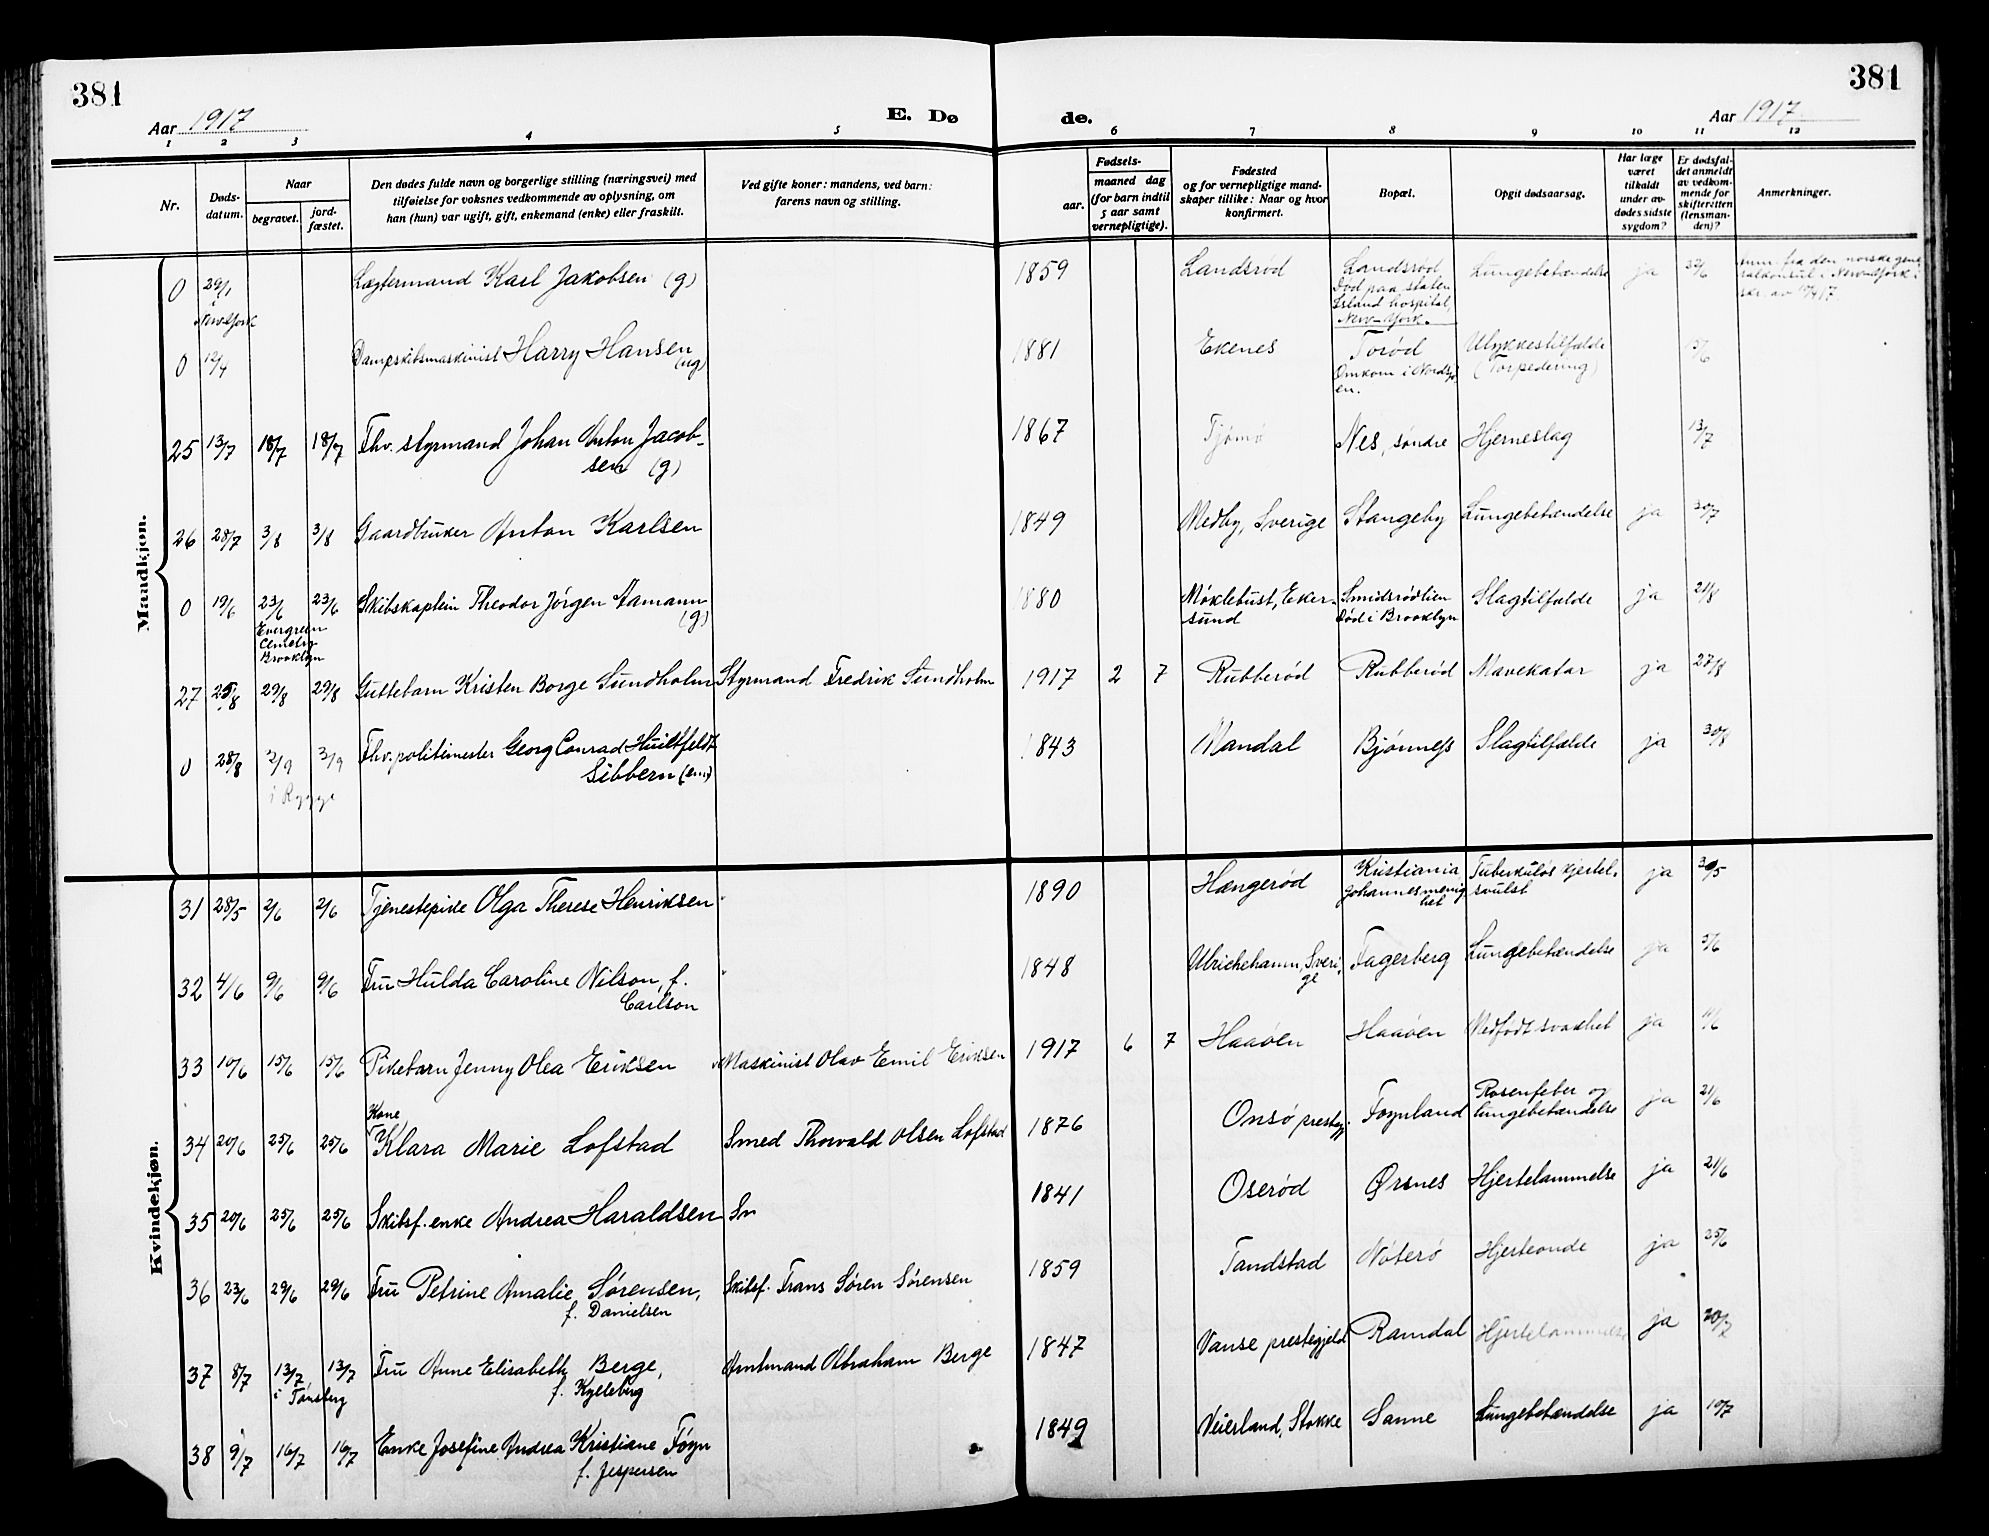 381
381
Aar 1917
E. Dø
de.
Aar 1917
1 2 3 4 5 6 7 8 9 10 11 12
Nr.
Døds-
datum.
Naar
begravet.
jord-
fæstet.
Den dødes fulde navn og borgerlige stilling (næringsvei) med
tilføielse for voksnes vedkommende av oplysning, om
han (hun) var ugift, gift, enkemand (enke) eller fraskilt.
Ved gifte koner: mandens, ved barn:
farens navn og stilling.
Fødsels-
aar.
maaned dag
(for barn indtil
5 aar samt
vernepligtige).
Fødested
og for vernepligtige mand-
skaper tillike: Naar og hvor
konfirmert.
Bopæl.
Opgit dødsaarsag.
Har læge
været
tilkaldt
under av-
dødes sidste
sygdom?
Er dødsfal-
det anmeldt
av vedkom-
mende for
skifteretten
(lensman-
den)?
Anmerkninger.
Mandkjøn.
0 29/1 Lægtermand Karl Jakobsen (g) 1859 Landsrød Landsrød Lungebetændelse ja
New York
Død paa Staten
Island hospital,
New-York.
den norske gene
ralkonsul i New-York i
skr. av
0 12/4 Dampskibsmaskinist Harry Hansen 1881 Ekenes Torød Ulykkestilfælde
(ug) Omkom i Nordsjø (Torpedering)
en.
25 13/7 18/7 18/7 Fhv. styrmand Johan Anton Jacob- 1867 Tjømø Nes, søndre Hjerneslag 13/7
sen (g)
26 28/7 3/8 3/8 Gaardbruker Anton Karlsen 1849 Medby, Sverige Stangeby Lungebetændelse ja 30/7
0 19/6 23/6 23/6 Skibskaptein Theodor Jørgen Aamann 1880 Møklebust, Eker- Smidsrødlien Slagtilfælde ja 21/8
(g) sund Død i Brooklyn
Evergreen
Cemetry
Brooklyn
27 25/8 29/8 29/8 Guttebarn Kristen Borge Sundholm Styrmand Fredrik Sundholm 1917 2 7 Rubberød Rubberød Mavekatar ja 27/8
0 28/8 2/9 2/9 Fhv. politimester Georg Conrad Huitfeldt 1843 Mandal Bjønnes Slagtilfælde ja 30/8
Sibbern (em)
i Rygge
Kvindekjøn.
31 28/5 2/6 2/6 Tjenestepike Olga Therese Henriksen 1890 Hængerød Kristiania Tuberkuløs kjertel- ja 30/5
Johannesmenig svulst
het
32 4/6 9/6 9/6 Fru Hulda Caroline Nilson, f. 1848 Ulrichehamn, Sveri Fagerberg Lungebetændelse ja 5/6
Carlson ge
33 10/6 15/6 15/6 Pikebarn Jenny Olea Eriksen Maskinist Olav Emil Eriksen 1917 6 7 Haaøen Haaøen Medfødt svakhet ja 11/6
34 20/6 25/6 25/6 Kone
Klara Marie Lofstad Smed Thorvald Olsen Lofstad 1876 Onsø prestegj. Føynland Rosenfeber og ja 21/6
lungebetændelse
35 20/6 25/6 25/6 Skibsf. enke Andrea Haraldsen Sn 1841 Oserød Ørsnes Hjertelammelse ja 21/6
36 23/6 29/6 29/6 Fru Petrine Amalie Sørensen, Skibsf. Frans Søren Sørensen 1859 Tandstad Nøterø Hjerteonde ja 25/6
f. Danielsen
37 8/7 13/7 13/7 Fru Anne Elisabeth Berge, Amtmand Abraham Berge 1847 Vanse prestegjeld Ramdal Hjertelammelse ja
i Tønsberg f. Kylleberg
38 9/7 16/7 16/7 Enke Josefine Andrea Kristiane Føyn 1849 Veierland, Stokke Sanne Lungebetændelse ja 10/7
f. Jespersen